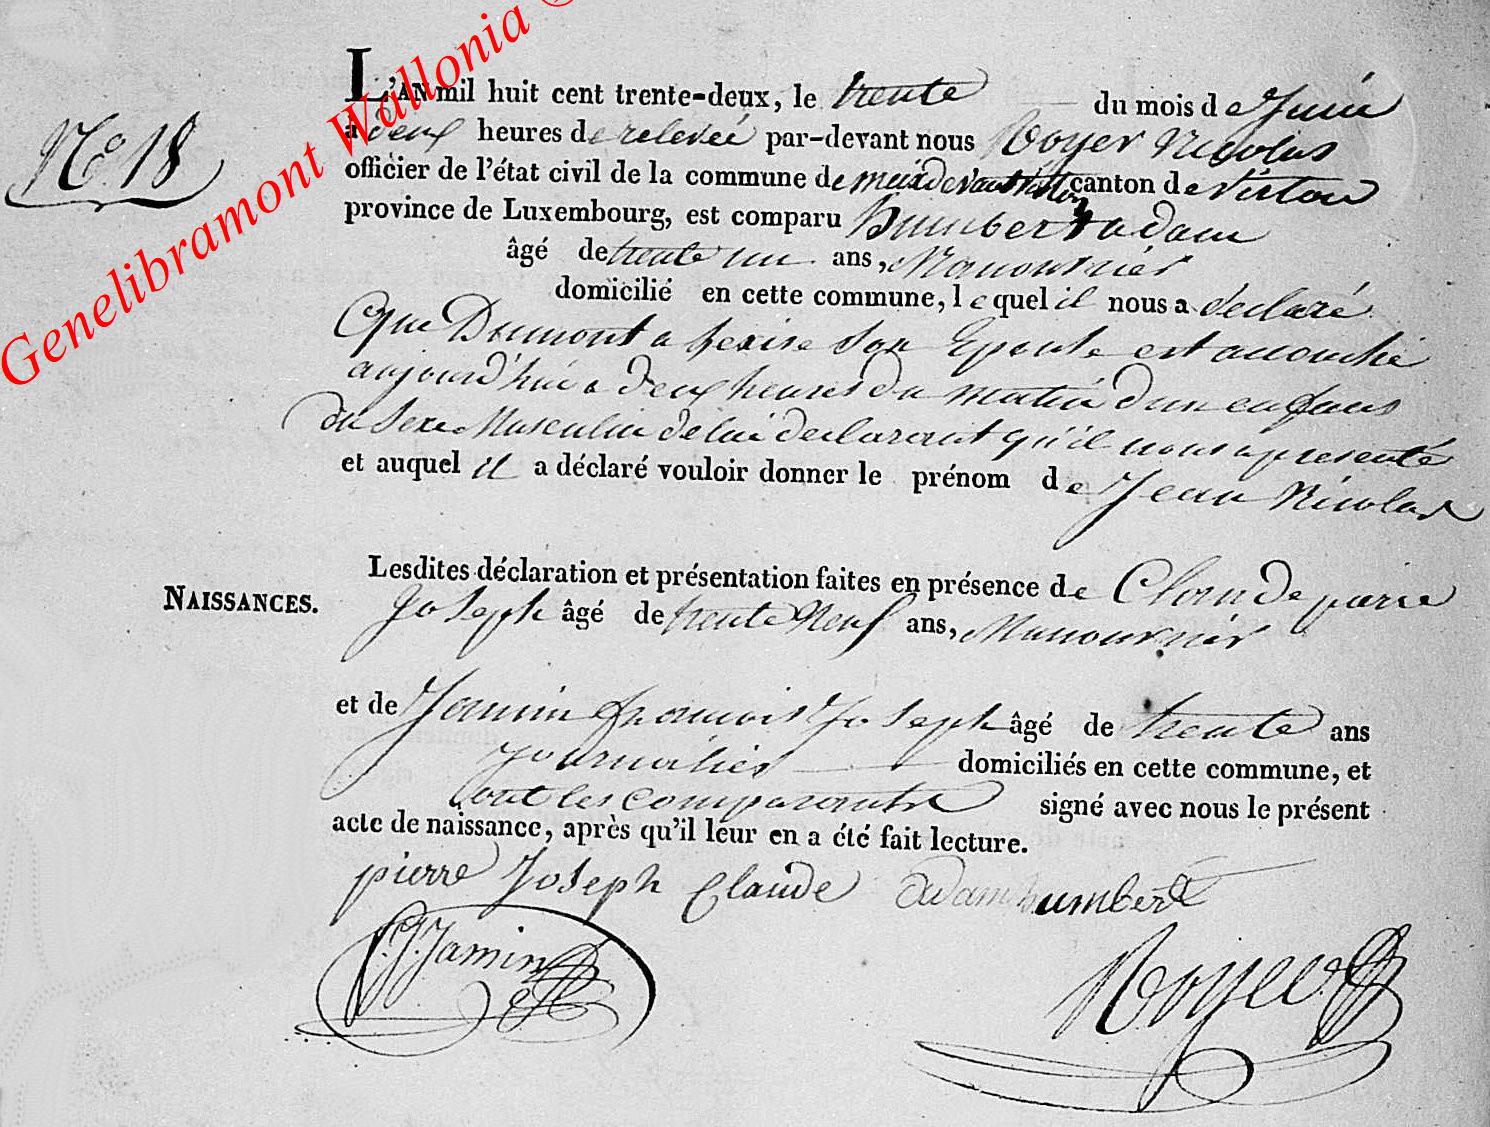 Genelibramont Wallonia ©
N.º 18
L'AN mil huit cent trente-deux, le trente du mois de Juin
à deux heures de relevée par-devant nous Royer Nicolas
officier de l'état civil de la commune de meixdevantvirton canton de Virton
province de Luxembourg, est comparu humbert adam
âgé de trente un ans, Manouvrier
domicilié en cette commune, lequel il nous a déclaré
Que Dumont son Epouse est accouché
aujourd'hui a deux heures du matin d'un enfans
du Sexe Masculin de lui declarant qu'il nous a presenté
et auquel il a déclaré vouloir donner le prénom de Jean Nicolas
NAISSANCES.
Lesdites déclaration et présentation faites en présence de Claude pierre
Joseph âgé de trente Neuf ans, Manouvrier
et de Jamin francois Joseph âgé de trente ans
Journalier domiciliés en cette commune, et
ont les comparants signé avec nous le présent
acte de naissance, après qu'il leur en a été fait lecture.
pierre Joseph Claude adam humbert
f.J.Jamin
Royer